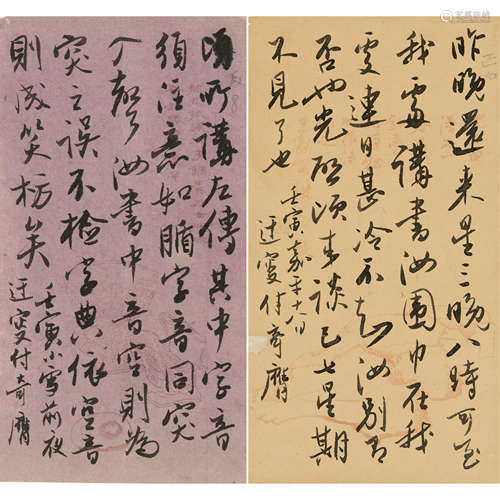 昨晚還來星三晚八時可至
我處講書汝圍巾在我
處連日甚冷不知汝別有
否也光頃來談已七星期
不見了也
壬寅嘉平十八日
迂叟付奇膺
所講左傳其中字音
須注意如腯字音同突
入聲汝書中音空則為
突之誤不檢字典依空音
則成笑枋矣
壬寅小雪前夜
迂叟付奇膺